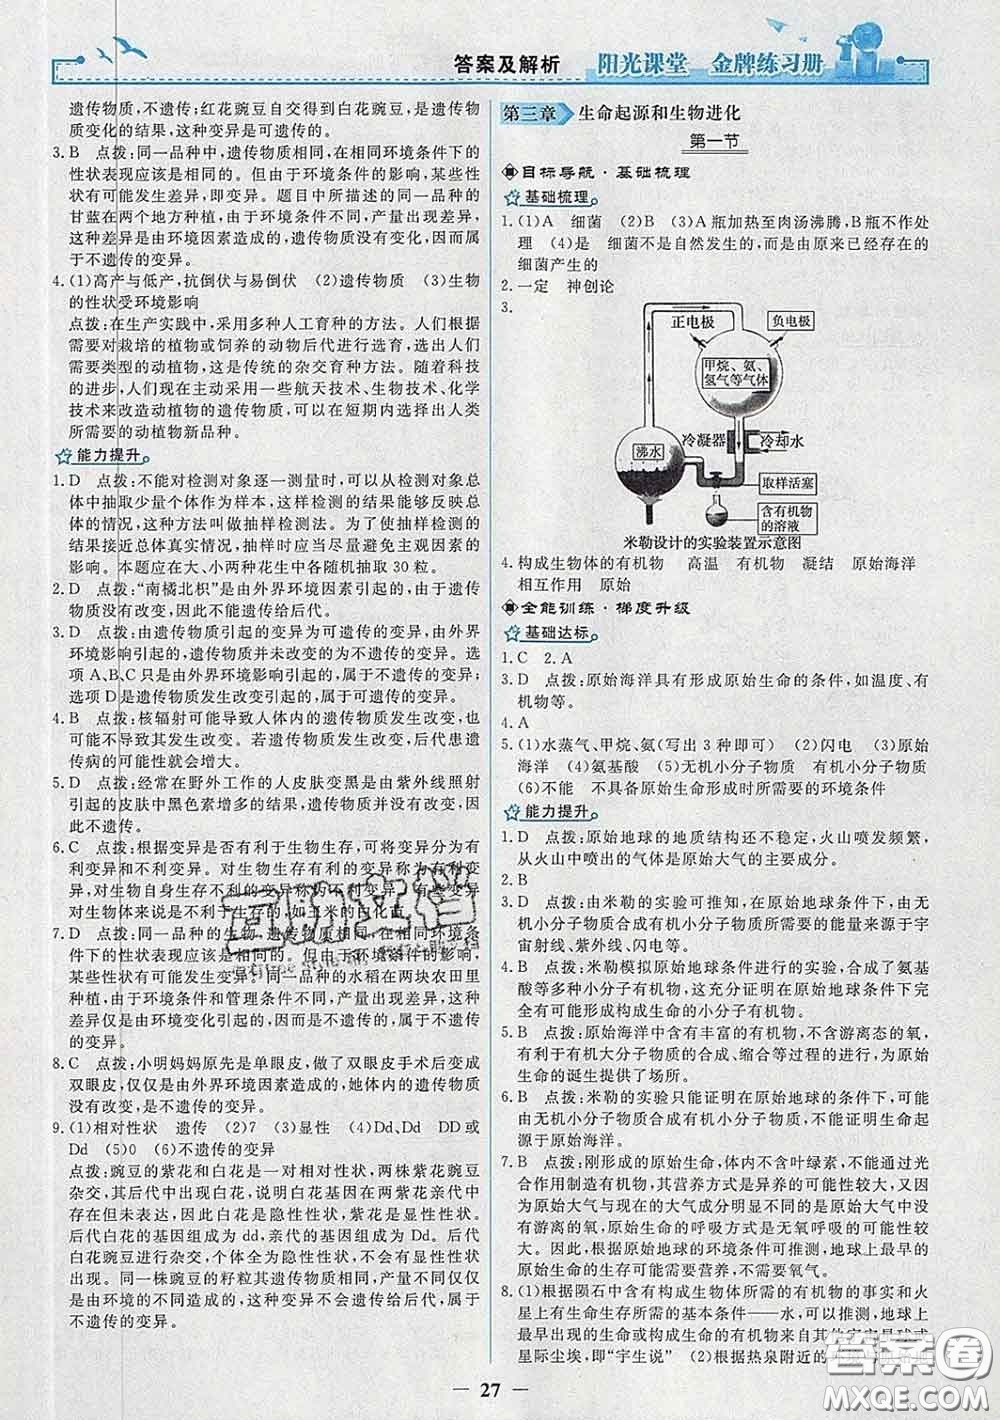 答案及解析
阳光课堂 金牌练习册
遗传物质,不遗传;红花豌豆自交得到白花豌豆,是遗传物
质变化的结果,这种变异是可遗传的。
3.B 点拨:同一品种中,遗传物质相同,在相同环境条件下的
性状表现应该是相同的。但由于环境条件的影响,某些性
状有可能发生差异,即变异。题目中所描述的同一品种的
甘蓝在两个地方种植,由于环境条件不同,产量出现差异,
这种差异是由环境因素造成的,遗传物质没有变化,因而属
于不遗传的变异。
4.(1)高产与低产,抗倒伏与易倒伏 (2)遗传物质 (3)生物
的性状受环境影响
点拨:在生产实践中,采用多种人工育种的方法。人们根据
需要对栽培的植物或饲养的动物后代进行选育,选出人们
需要类型的动植物,这是传统的杂交育种方法。随着科技
的进步,人们现在主动采用一些航天技术、生物技术、化学
技术来改造动植物的遗传物质,可以在短期内选择出人类
所需要的动植物新品种。
能力提升
1.D 点拨:不能对检测对象逐一测量时,可以从检测对象总
体中抽取少量个体作为样本,这样检测的结果能够反映总
体的情况,这种方法叫做抽样检测法。为了使抽样检测的
结果接近总体真实情况,抽样时应当尽量避免主观因素的
影响。本题应在大、小两种花生中各随机抽取 30 粒。
2.D 点拨:“南橘北枳”是由外界环境因素引起的,由于遗传
物质没有改变,因此不能遗传给后代。
3.D 点拨:由遗传物质引起的变异为可遗传的变异,由外界
环境引起的,遗传物质并未改变的为不可遗传的变异。选
项 A、B、C 只是由外界环境影响引起的,为不遗传的变异;
选项 D 是遗传物质发生改变引起的,属于可遗传的变异。
4.B 点拨:核辐射可能导致人体内的遗传物质发生改变,也
可能没有导致其发生改变。若遗传物质发生改变,后代患遗
传病的可能性就会增大。
5.D 点拨:经常在野外工作的人皮肤变黑是由紫外线照射
引起的皮肤中黑色素增多的结果,遗传物质没有改变,因
此不遗传。
6.C 点拨:根据变异是否有利于生物生存,可将变异分为有
利变异和不利变异。对生物生存有利的变异称为有利变
异,对生物自身生存不利的变异称为不利变异。有利变异
对生物体来说是不利于生存的,如玉米的白化苗。
7.D 点拨:同一品种的生物,遗传物质相同,在相同环境下的
性状表现应该是相同的。但由于环境条件的影响,某些性
状有可能发生差异,即变异。同一品种的水稻在两块农田里
种植,由于环境条件和管理条件不同,出现产量差异,这种
差异仅是由环境变化引起的,因而是不遗传的,属于不遗传
的变异。
8.C 点拨:小明妈妈原先是单眼皮,做了双眼皮手术后变成
双眼皮,仅仅是由外界环境因素造成的,她体内的遗传物质
没有改变,是不遗传的变异。
9.(1)相对性状 遗传 (2)7 (3)显性 (4)Dd、Dd DD或
Dd (5)0 (6)不遗传的变异
点拨:豌豆的紫花和白花是一对相对性状,两株紫花豌豆
杂交,其后代中出现白花,说明白花基因在两紫花亲代中
存在但未表达,因此白花是隐性性状,紫花是显性性状。
后代白花的基因组成为 dd,亲代的基因组成为 Dd。后代
白花豌豆进行杂交,个体全为隐性性状,不会有显性性状
出现。同一株豌豆的籽粒其遗传物质相同,产量不同仅仅
是由环境的不同造成的,这种变异不会遗传给后代,属于
不遗传的变异。
第三章 生命起源和生物进化
第一节
目标导航·基础梳理
基础梳理
1.(1)A 细菌 (2)B (3)A 瓶加热至肉汤沸腾,B 瓶不作处
理 (4)是 细菌不是自然发生的,而是由原来已经存在的
细菌产生的
2.一定 神创论
3.
正电极
负电极
甲烷、氨、
氢气等气体
冷凝器
冷却水
沸水
取样活塞
含有机物
的溶液
米勒设计的实验装置示意图
4.构成生物体的有机物 高温 有机物 凝结 原始海洋
相互作用 原始
全能训练·梯度升级
基础达标
1.C 2.A
3.D 点拨:原始海洋具有形成原始生命的条件,如温度、有
机物等。
4.A
5.(1)水蒸气、甲烷、氨(写出 3 种即可) (2)闪电 (3)原始
海洋 (4)氨基酸 (5)无机小分子物质 有机小分子物质
(6)不能 不具备原始生命形成时所需要的环境条件
能力提升
1.D 点拨:原始地球的地质结构还不稳定,火山喷发频繁,
从火山中喷出的气体是原始大气的主要成分。
2.B
3.D 点拨:由米勒的实验可推知,在原始地球条件下,由无
机小分子物质合成有机小分子物质所需要的能量来源于宇
宙射线、紫外线、闪电等。
4.B 点拨:米勒模拟原始地球条件进行的实验,合成了氨基
酸等多种小分子有机物,这充分证明在原始地球条件下完
全有可能形成构成生命的小分子有机物。
5.B 点拨:原始海洋中含有丰富的有机物,不含游离态的氧,
有利于有机大分子物质的合成、缩合等过程的进行,为原始
生命的诞生提供了场所。
6.B 点拨:米勒的实验只能证明在原始地球的条件下,可能
由无机小分子物质合成有机小分子物质,不能证明生命起
源于原始海洋。
7.B 点拨:刚形成的原始生命,体内不含叶绿素,不能通过光
合作用制造有机物,其营养方式是异养的可能性较大,又因
为原始大气与现在的大气成分明显不同的是原始大气中
没有游离的氧,原始生命的呼吸方式是无氧呼吸的可能性
较大。因此,根据原始地球的环境条件可推测,地球上最早的
原始生命的生存可能需要营养,不需要氧气。
8.(1)根据陨石中含有构成生物体的有机物的事实和火
星上有生命生存所需的基本条件——水,可以推测,地球上
最早出现的生命或构成生命的有机物来自其他宇宙星球或
星际尘埃,即“宇生说” (2)根据热泉附近的
27
互助文档
答案圈
MXQE.COM